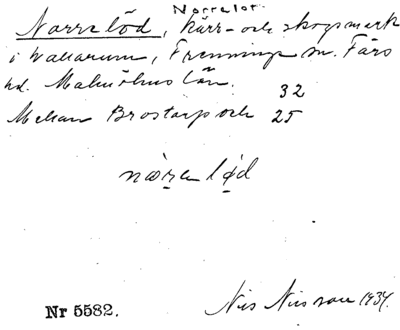 Norrelot.
Norrelöd, kärr- och skogsmark
i Vallarum, Frenninge sn. Färs
hd. Malmöhus län.
Mellan Brostarp och 32
25
næra lød
Nr 5582.
Nils Nilsson 1934.